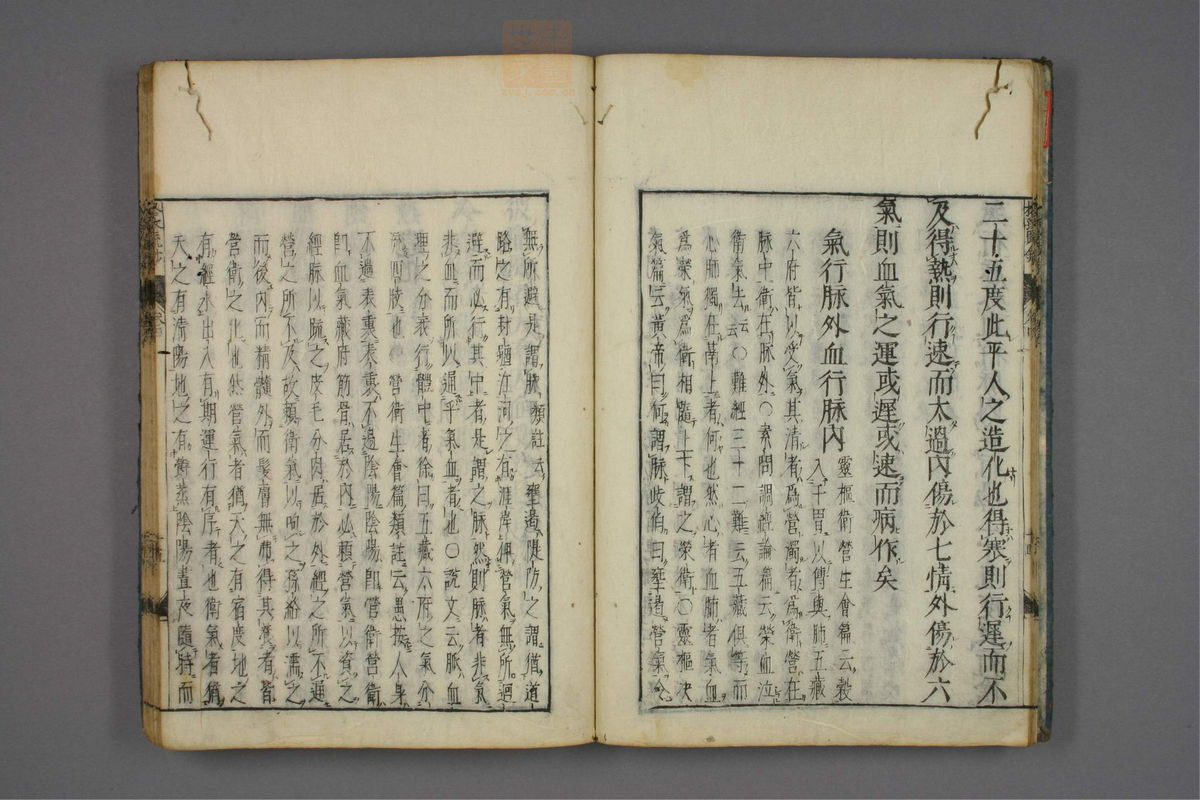 二十五度此平人之造化也得寒則行遲而不
及得熱則行速而太過內傷於七情外傷於六
氣則血氣之運或遲或速而病作矣
氣行脉外血行脉內
靈樞衛營生會篇云穀
入于胃以傳與肺五藏
六府皆以受氣其清者爲營濁者爲衛營在
脉中衛在脉外○素問調經論篇云榮血泣
衛氣去云云○難經三十二難云五藏俱等而
心肺獨在鬲上者何也然心者血肺者氣血
爲榮氣爲衛相隨上下謂之榮衛○靈樞决
氣篇云黃帝曰何謂脉岐伯曰壅遏營氣令
無所避是謂脉類註云壅遏隄防之謂猶道
路之有封疆江河之有涯岸俾營氣無所迴
避而必行其中者是謂之脉然則脉者非氣
非血而所以通乎氣血者也○說文云脈血
理之分衺行體中者徐曰五藏六府之氣分
流四肢也 營衛生會篇類註云愚按人身
不過表裏表裏不過陰陽陰陽即營衛營衛
即血氣藏府筋骨居於內必賴營氣以資之
經脉以䟽之皮毛分肉居於外經之所不通
營之所不及故賴衛氣以呴之孫絡以濡之
而後內而精髓外而髮膚無弗得其養者皆
營衛之化也然營氣者猶天之有宿度地之
有經水出入有期運行有序者也衛氣者猶
天之有清陽地之有鬱蒸陰陽晝夜隨時而